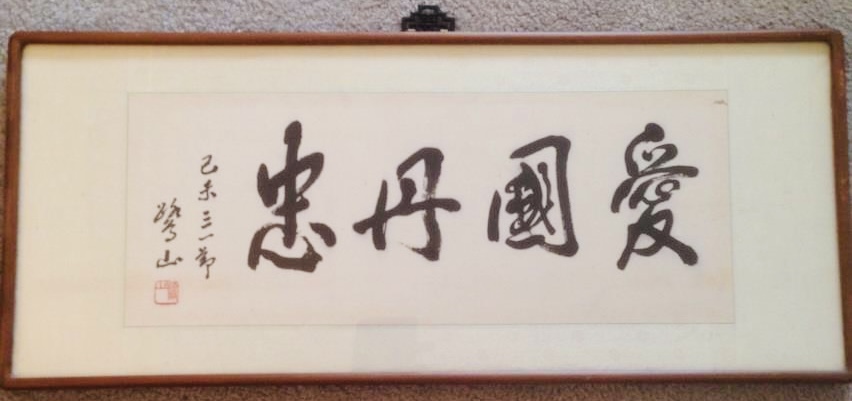 愛國丹忠
己未三一節
鷺山